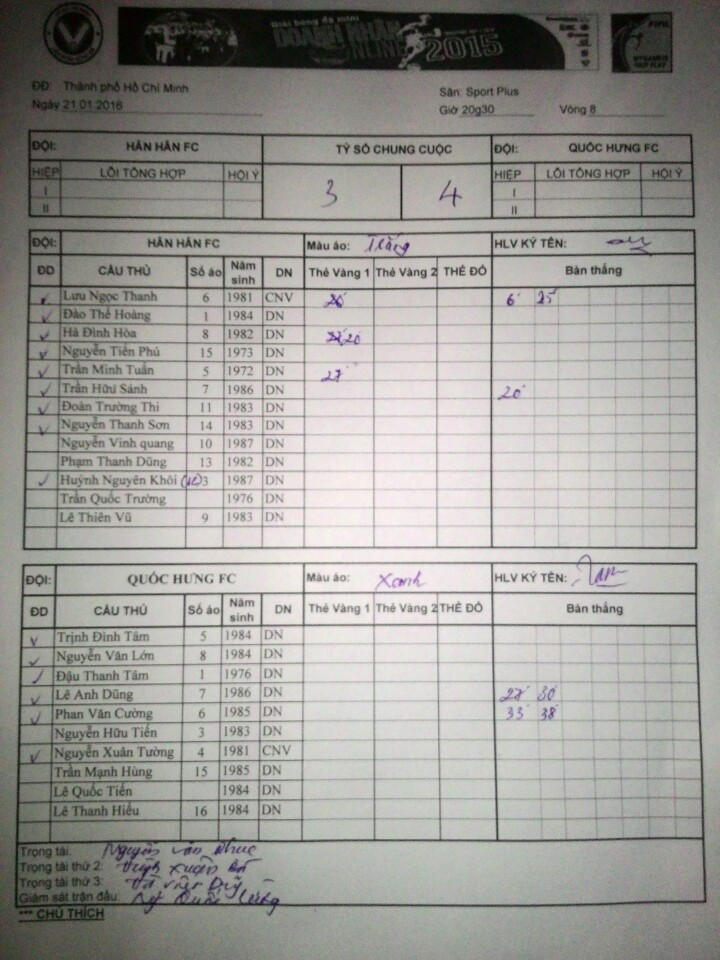 Giải bóng đá mini
DOANH NHÂN
ONLINE 2015
ĐĐ: Thành phố Hồ Chí Minh
Sân: Sport Plus
Ngày 21.01.2016
Giờ 20g30 Vòng 8
ĐỘI: HÂN HÂN FC TỶ SỐ CHUNG CUỘC ĐỘI: QUỐC HƯNG FC
HIỆP LỖI TỔNG HỢP HỘI Ý 3 4 HIỆP LỖI TỔNG HỢP HỘI Ý
I I
II II
ĐỘI: HÂN HÂN FC Màu áo: Trắng HLV KÝ TÊN:
ĐD CẦU THỦ Số áo Năm sinh DN Thẻ Vàng 1 Thẻ Vàng 2 THẺ ĐỎ Bàn thắng
Lưu Ngọc Thanh 6 1981 CNV 6' 25'
Đào Thế Hoàng 1 1984 DN
Hà Đình Hòa 8 1982 DN 20
Nguyễn Tiến Phú 15 1973 DN
Trần Minh Tuấn 5 1972 DN 27'
Trần Hữu Sánh 7 1986 DN 20'
Đoàn Trường Thi 11 1983 DN
Nguyễn Thanh Sơn 14 1983 DN
Nguyễn Vinh quang 10 1987 DN
Phạm Thanh Dũng 13 1982 DN
Huỳnh Nguyên Khôi 3 1987 DN
Trần Quốc Trường 1976 DN
Lê Thiên Vũ 9 1983 DN
ĐỘI: QUỐC HƯNG FC Màu áo: Xanh HLV KÝ TÊN:
ĐD CẦU THỦ Số áo Năm sinh DN Thẻ Vàng 1 Thẻ Vàng 2 THẺ ĐỎ Bàn thắng
Trịnh Đình Tâm 5 1984 DN
Nguyễn Văn Lớn 8 1984 DN
Đậu Thanh Tâm 1 1976 DN
Lê Anh Dũng 7 1986 DN 27' 30'
Phan Văn Cường 6 1985 DN 33' 38'
Nguyễn Hữu Tiến 3 1983 DN
Nguyễn Xuân Tường 4 1981 CNV
Trần Mạnh Hùng 15 1985 DN
Lê Quốc Tiến 1984 DN
Lê Thanh Hiếu 16 1984 DN
Trọng tài: Nguyễn Văn
Trọng tài thứ 2: Xuân
Trọng tài thứ 3:
Giám sát trận đấu:
*** CHÚ THÍCH